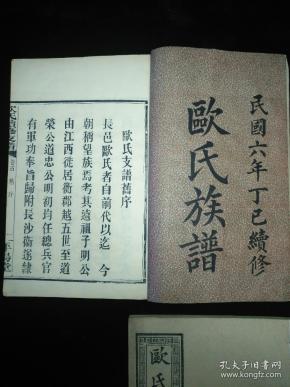 民國六年丁巳續修
歐氏族譜
歐氏支譜舊序
長邑歐氏者自前代以迄 今
朝稱望族焉考其遠祖子明公
由江西徙居衡郡越五世至道
榮公道忠公明初均任總兵官
有軍功奉旨歸附長沙衛遂隸
歐氏
孔夫子旧书网